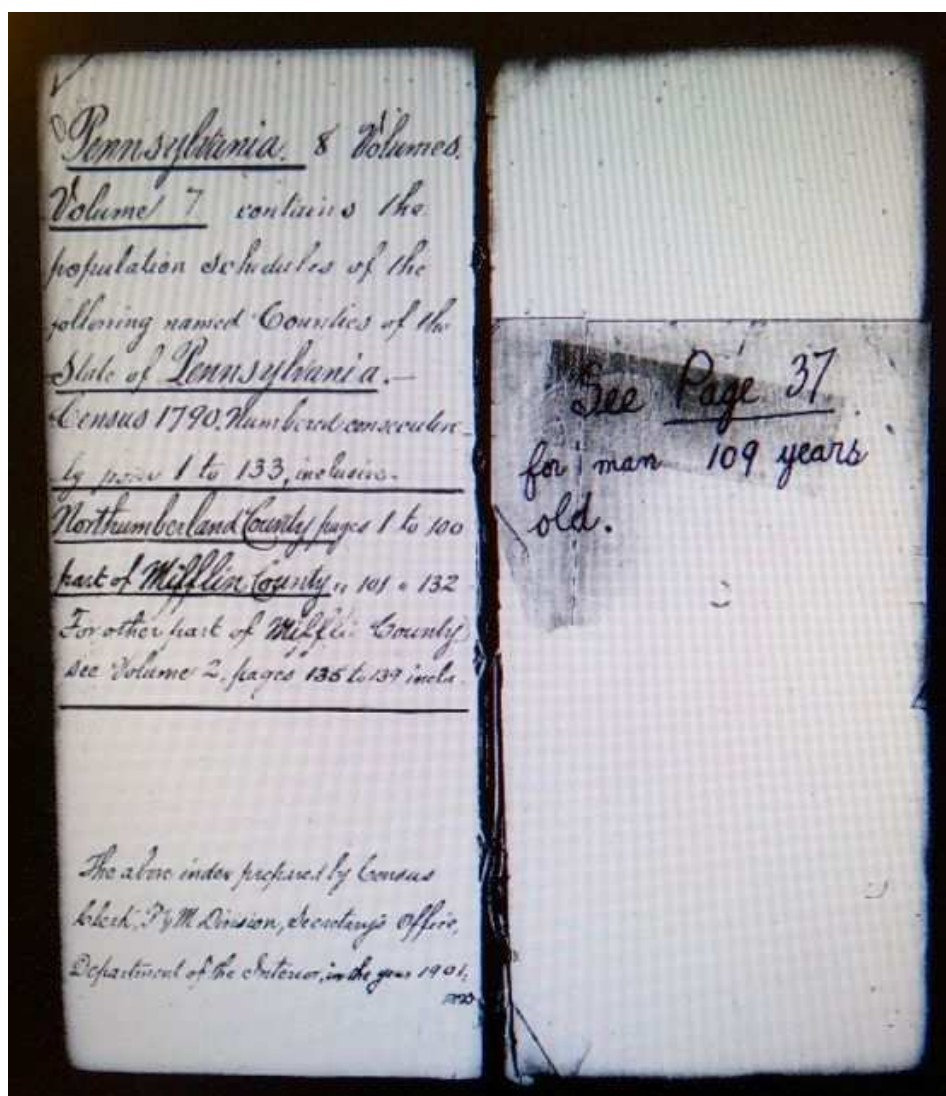 Pennsylvania. 8 Volumes.
Volume 7 contains the
population schedules of the
following named Counties of the
State of Pennsylvania.—
Census 1790. Numbered consecutive-
ly from 1 to 133, inclusive.
Northumberland County pages 1 to 100
part of Mifflin County " 101 " 132
For other part of Mifflin County
see Volume 2, pages 135 to 139 inclu.
The above index prepared by Census
Clerk, P & M Division, Secretary's Office,
Department of the Interior, in the year 1901.
See Page 37
for man 109 years
old.